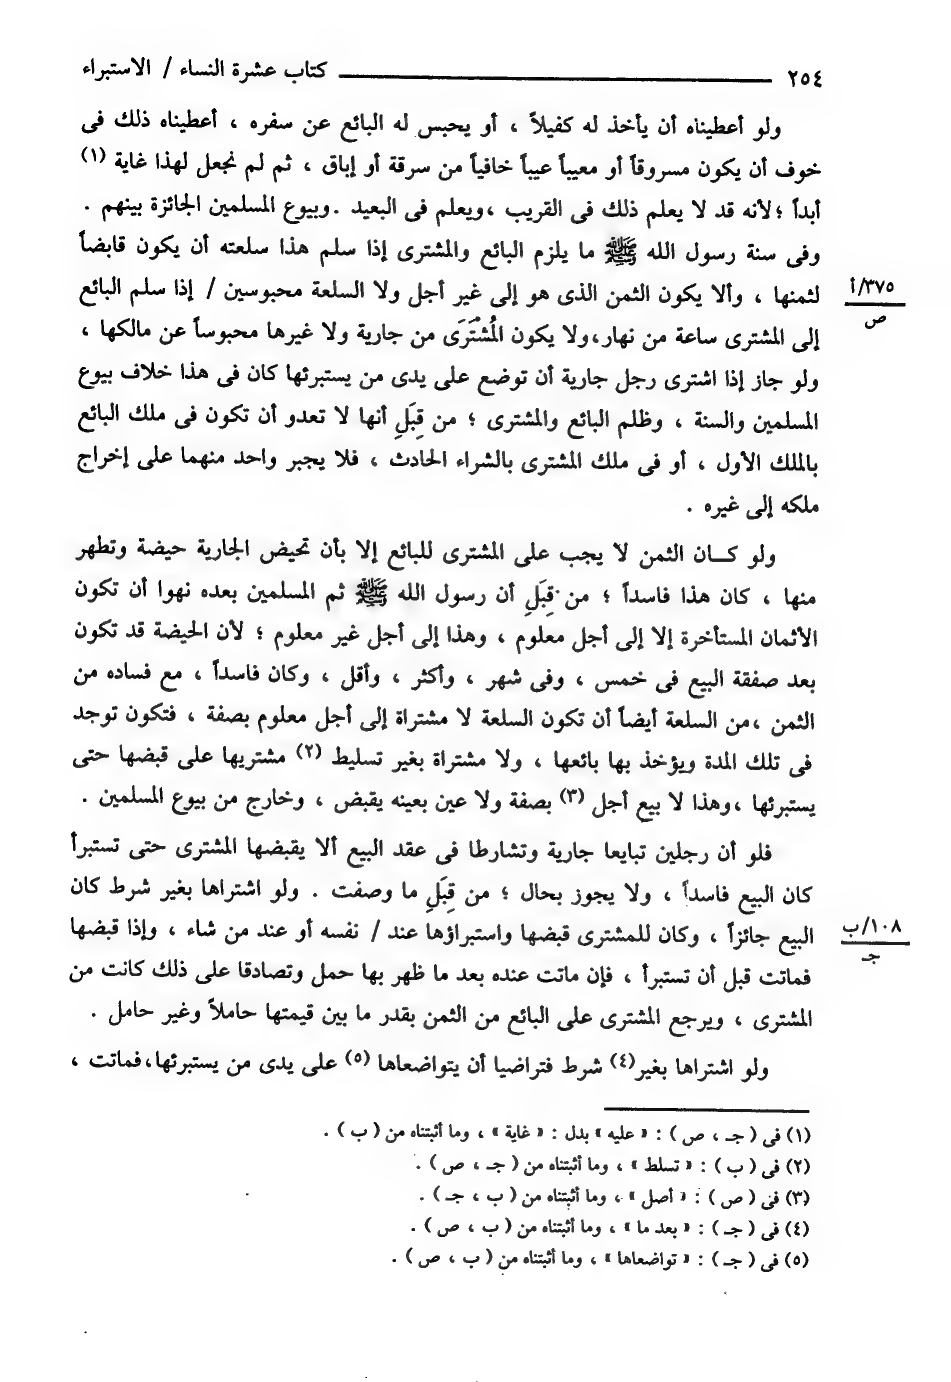 ٢٥٤ ــــــــــ كتاب عشرة النساء / الاستبراء
ولو أعطيناه أن يأخذ له كفيلاً ، أو يحبس له البائع عن سفره ، أعطيناه ذلك فى
خوف أن يكون مسروقاً أو معيباً عيباً خافياً من سرقة أو إباق ، ثم لم نجعل لهذا غاية (١)
أبداً ؛لأنه قد لا يعلم ذلك فى القريب ،ويعلم فى البعيد .وبيوع المسلمين الجائزة بينهم .
وفى سنة رسول الله ﷺ ما يلزم البائع والمشترى إذا سلم هذا سلعته أن يكون قابضاً
لثمنها ، وألا يكون الثمن الذى هو إلى غير أجل ولا السلعة محبوسين / إذا سلم البائع
٣٧٥/أ
ص
إلى المشترى ساعة من نهار،ولا يكون المُشْتَرَى من جارية ولا غيرها محبوساً عن مالكها ،
ولو جاز إذا اشترى رجل جارية أن توضع على يدى من يستبرئها كان فى هذا خلاف بيوع
المسلمين والسنة ، وظلم البائع والمشترى ؛ من قِبَلِ أنها لا تعدو أن تكون فى ملك البائع
بالملك الأول ، أو فى ملك المشترى بالشراء الحادث ، فلا يجبر واحد منهما على إخراج
ملكه إلى غيره .
ولو كــان الثمن لا يجب على المشترى للبائع إلا بأن تحيض الجارية حيضة وتطهر
منها ، كان هذا فاسداً ؛ من قِبَلِ أن رسول الله ﷺ ثم المسلمين بعده نهوا أن تكون
الأثمان المستأخرة إلا إلى أجل معلوم ، وهذا إلى أجل غير معلوم ؛ لأن الحيضة قد تكون
بعد صفقة البيع فى خمس ، وفى شهر ، وأكثر ، وأقل ، وكان فاسداً ، مع فساده من
الثمن ،من السلعة أيضاً أن تكون السلعة لا مشتراة إلى أجل معلوم بصفة ، فتكون توجد
فى تلك المدة ويؤخذ بها بائعها ، ولا مشتراة بغير تسليط (٢) مشتريها على قبضها حتى
يستبرئها ،وهذا لا بيع أجل (٣) بصفة ولا عين بعينه يقبض ، وخارج من بيوع المسلمين .
فلو أن رجلين تبايعا جارية وتشارطا فى عقد البيع ألا يقبضها المشترى حتى تستبرأ
كان البيع فاسداً ، ولا يجوز بحال ؛ من قِبَلِ ما وصفت . ولو اشتراها بغير شرط كان
البيع جائزاً ، وكان للمشترى قبضها واستبراؤها عند / نفسه أو عند من شاء ، وإذا قبضها
١٠٨/ب
جـ
فماتت قبل أن تستبرأ ، فإن ماتت عنده بعد ما ظهر بها حمل وتصادقا على ذلك كانت من
المشترى ، ويرجع المشترى على البائع من الثمن بقدر ما بين قيمتها حاملاً وغير حامل .
ولو اشتراها بغير(٤) شرط فتراضيا أن يتواضعاها (٥) على يدى من يستبرئها،فماتت ،
(١) فى ( جـ ، ص ) : « عليه » بدل : « غاية » ، وما أثبتناه من ( ب ) .
(٢) فى ( ب ) : « تسلط » ، وما أثبتناه من ( جـ ، ص ) .
(٣) فى ( ص ) : « أصل » ، وما أثبتناه من ( ب ، جـ ) .
(٤) فى ( جـ ) : « بعد ما » ، وما أثبتناه من ( ب ، ص ) .
(٥) فى ( جـ ) : « تواضعاها » ، وما أثبتناه من ( ب ، ص ) .